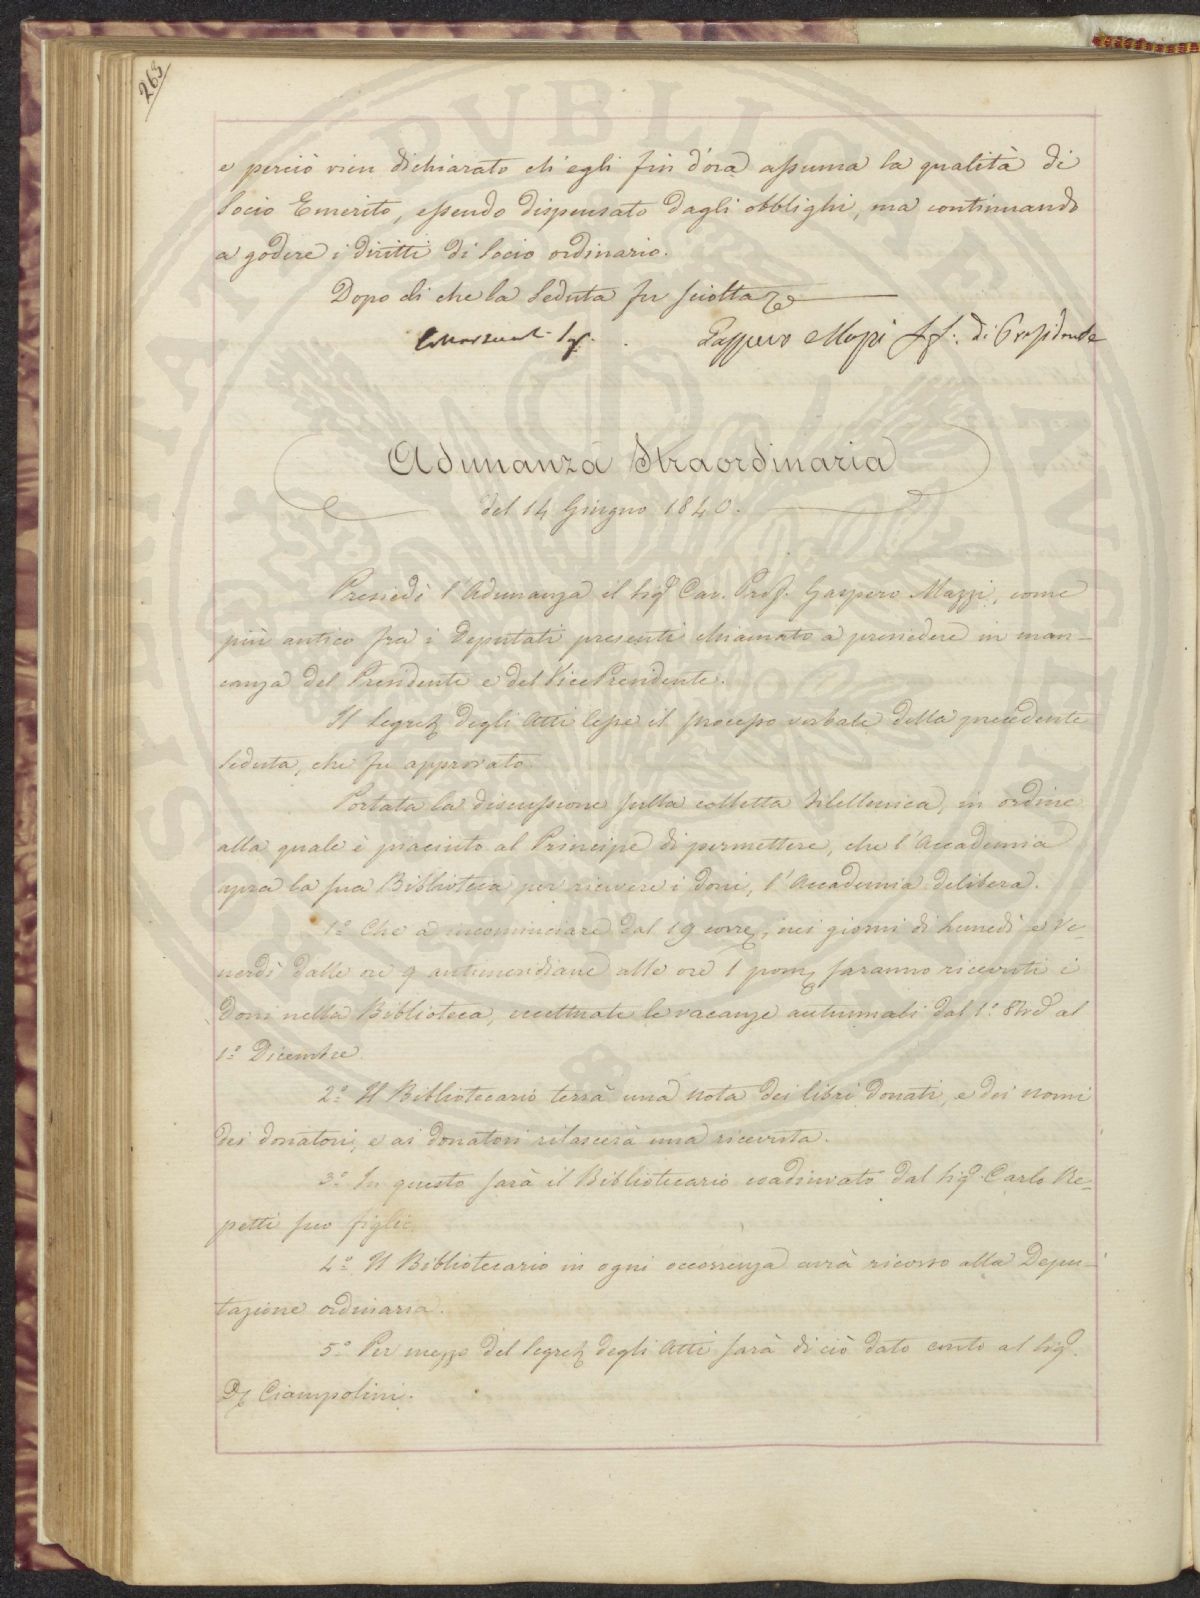 263
e perciò vien dichiarato ch'egli fin d'ora assuma la qualità di
Socio Emerito, essendo dispensato dagli obblighi, ma continuando
a godere i diritti di Socio ordinario.
Dopo di che la Seduta fu sciolta
Gaspero Mazzi ff. di Presidente
Adunanza Straordinaria
del 14 Giugno 1840.
Presiedè l'Adunanza il Sig. Cav. Prof. Gaspero Mazzi, come
più antico fra i Deputati presenti chiamato a presiedere in man-
canza del Presidente e del VicePresidente.
Il Segret. degli Atti lesse il processo verbale della precedente
Seduta, che fu approvato.
Portata la discussione sulla colletta Filellenica, in ordine
alla quale è piaciuto al Principe di permettere, che l'Accademia
apra la sua Biblioteca per ricevere i doni, l'Accademia delibera.
1.° Che a incominciare dal 19 corr., nei giorni di Lunedì e Ve-
nerdì dalle ore 9 antimeridiane alle ore 1 pom. saranno ricevuti i
Doni nella Biblioteca, eccettuate le vacanze autunnali dal 1.° 8bre al
1.° Dicembre.
2.° Il Bibliotecario terrà una nota dei libri donati, e dei nomi
dei donatori, e ai donatori rilascerà una ricevuta.
3.° In questo sarà il Bibliotecario coadiuvato dal Sig. Carlo Re-
petti suo figlio.
4.° Il Bibliotecario in ogni occorrenza avrà ricorso alla Depu-
tazione ordinaria.
5.° Per mezzo del Segret. degli Atti sarà di ciò dato conto al Sig.
Dr. Ciampolini.